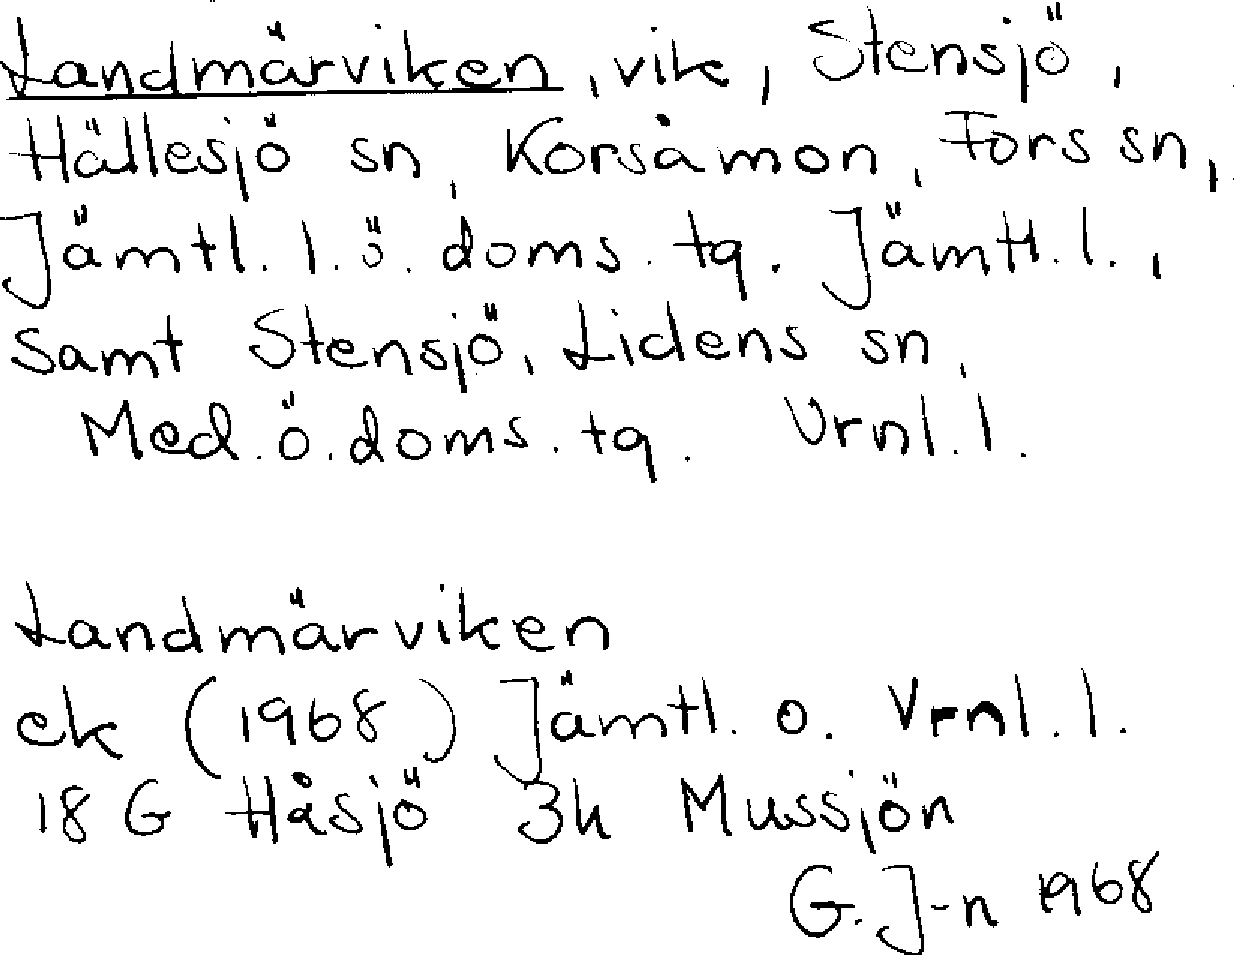 Landmärviken, vik, Stensjö,
Hällesjö sn, Korsåmon, Fors sn,
Jämtl. l. ö. doms. tg. Jämtl. l.,
samt Stensjö, Lidens sn,
Med. ö. doms. tg. Vrnl. l.
Landmärviken
ek (1968) Jämtl. o. Vrnl. l.
18 G Håsjö 3h Mussjön
G. J-n 1968